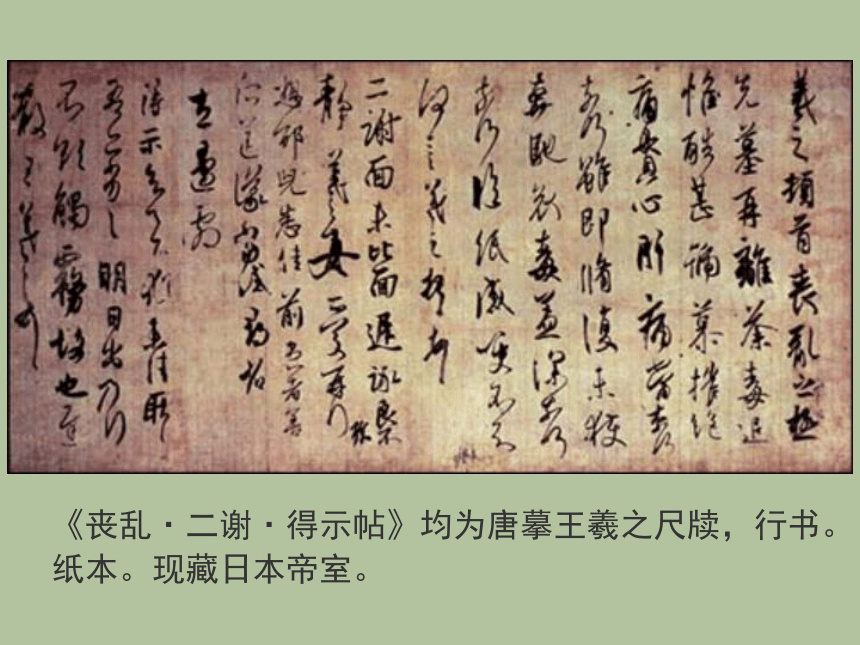 羲之頓首喪亂之極
先墓再離荼毒追
惟酷甚號慕摧絕
痛貫心肝痛當奈何
奈何雖即脩復未獲
奔馳哀毒益深奈何
奈何臨紙感哽不知
何言羲之頓首頓首
二謝面未比面遲詠良
靜羲之女愛再拜
想邰兒悉佳前患者善
左邊劇
得示知足下猶未佳耿
吾亦劣劣明日出乃行
不欲觸霧故也遲
散王羲之頓首
《丧乱·二谢·得示帖》均为唐摹王羲之尺牍，行书。
纸本。现藏日本帝室。